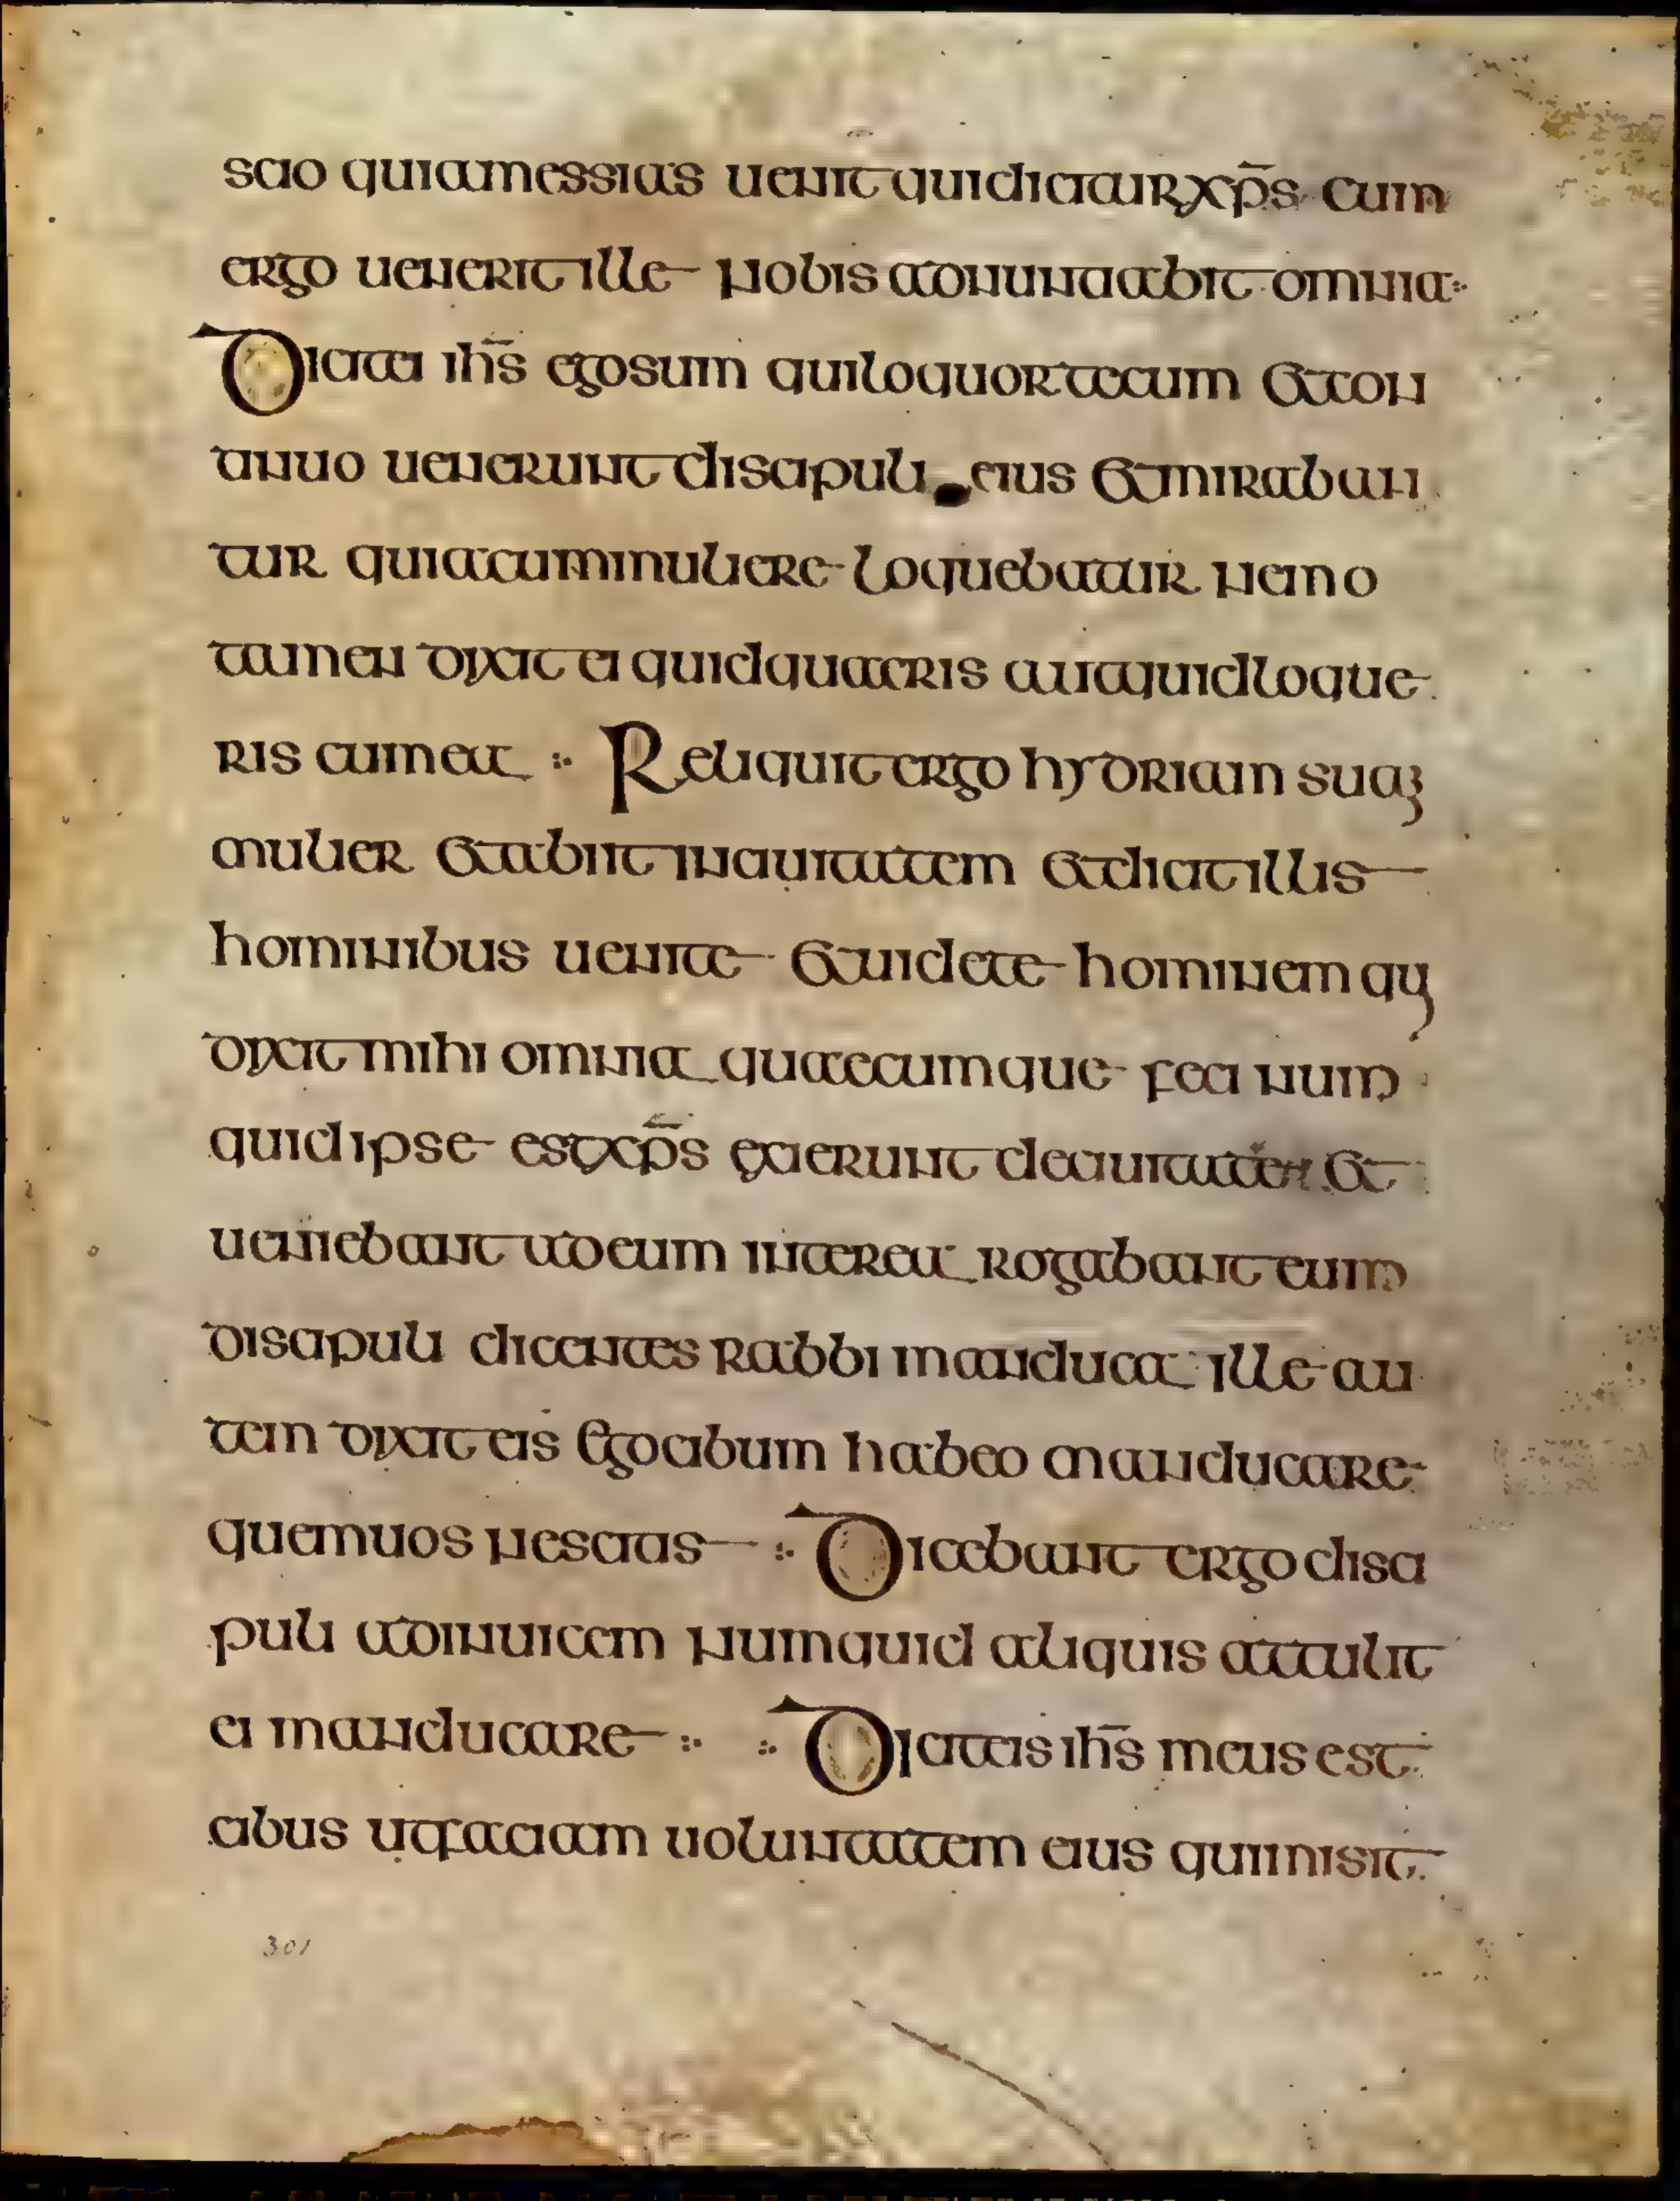 scio quia messias uenit qui dicitur xp̄s cum
ergo uenerit ille nobis adnunciabit omnia:·
Dicit ei ih̄s ego sum qui loquor tecum et con
tinuo uenerunt discipuli eius et miraban
tur quia cum muliere loquebatur nemo
tamen dixit ei quid quaeris aut quid loque
ris cum ea :· Reliquit ergo hydriam suaʒ
mulier et abiit in ciuitatem et dicit illis
hominibus uenite et uidete hominem qui
dixit mihi omnia quaecumque feci num
quid ipse est xp̄s exierunt de ciuitate et
ueniebant ad eum interea rogabant eum
discipuli dicentes rabbi manduca ille au
tem dixit eis ego cibum habeo manducare
quem uos nescitis :· Dicebant ergo disci
puli ad inuicem numquid aliquis attulit
ei manducare :· :· Dicit eis ih̄s meus est
cibus ut faciam uoluntatem eius qui misit
301